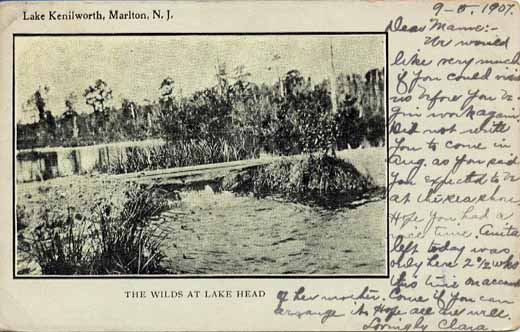 Lake Kenilworth, Marlton, N. J.
9-5, 1907.
Dear Mame:-
We would
like very much
if you could visit
us before you be-
gin work again
Did not write
you to come in
Aug. as you said
you expected to be
at the sea shore
Hope you had a
nice time. Anita
left today was
only here 2 1/2 wks
this time on account
THE WILDS AT LAKE HEAD
of her mother. Come if you can
arrange it. Hope all are well.
Lovingly Clara.